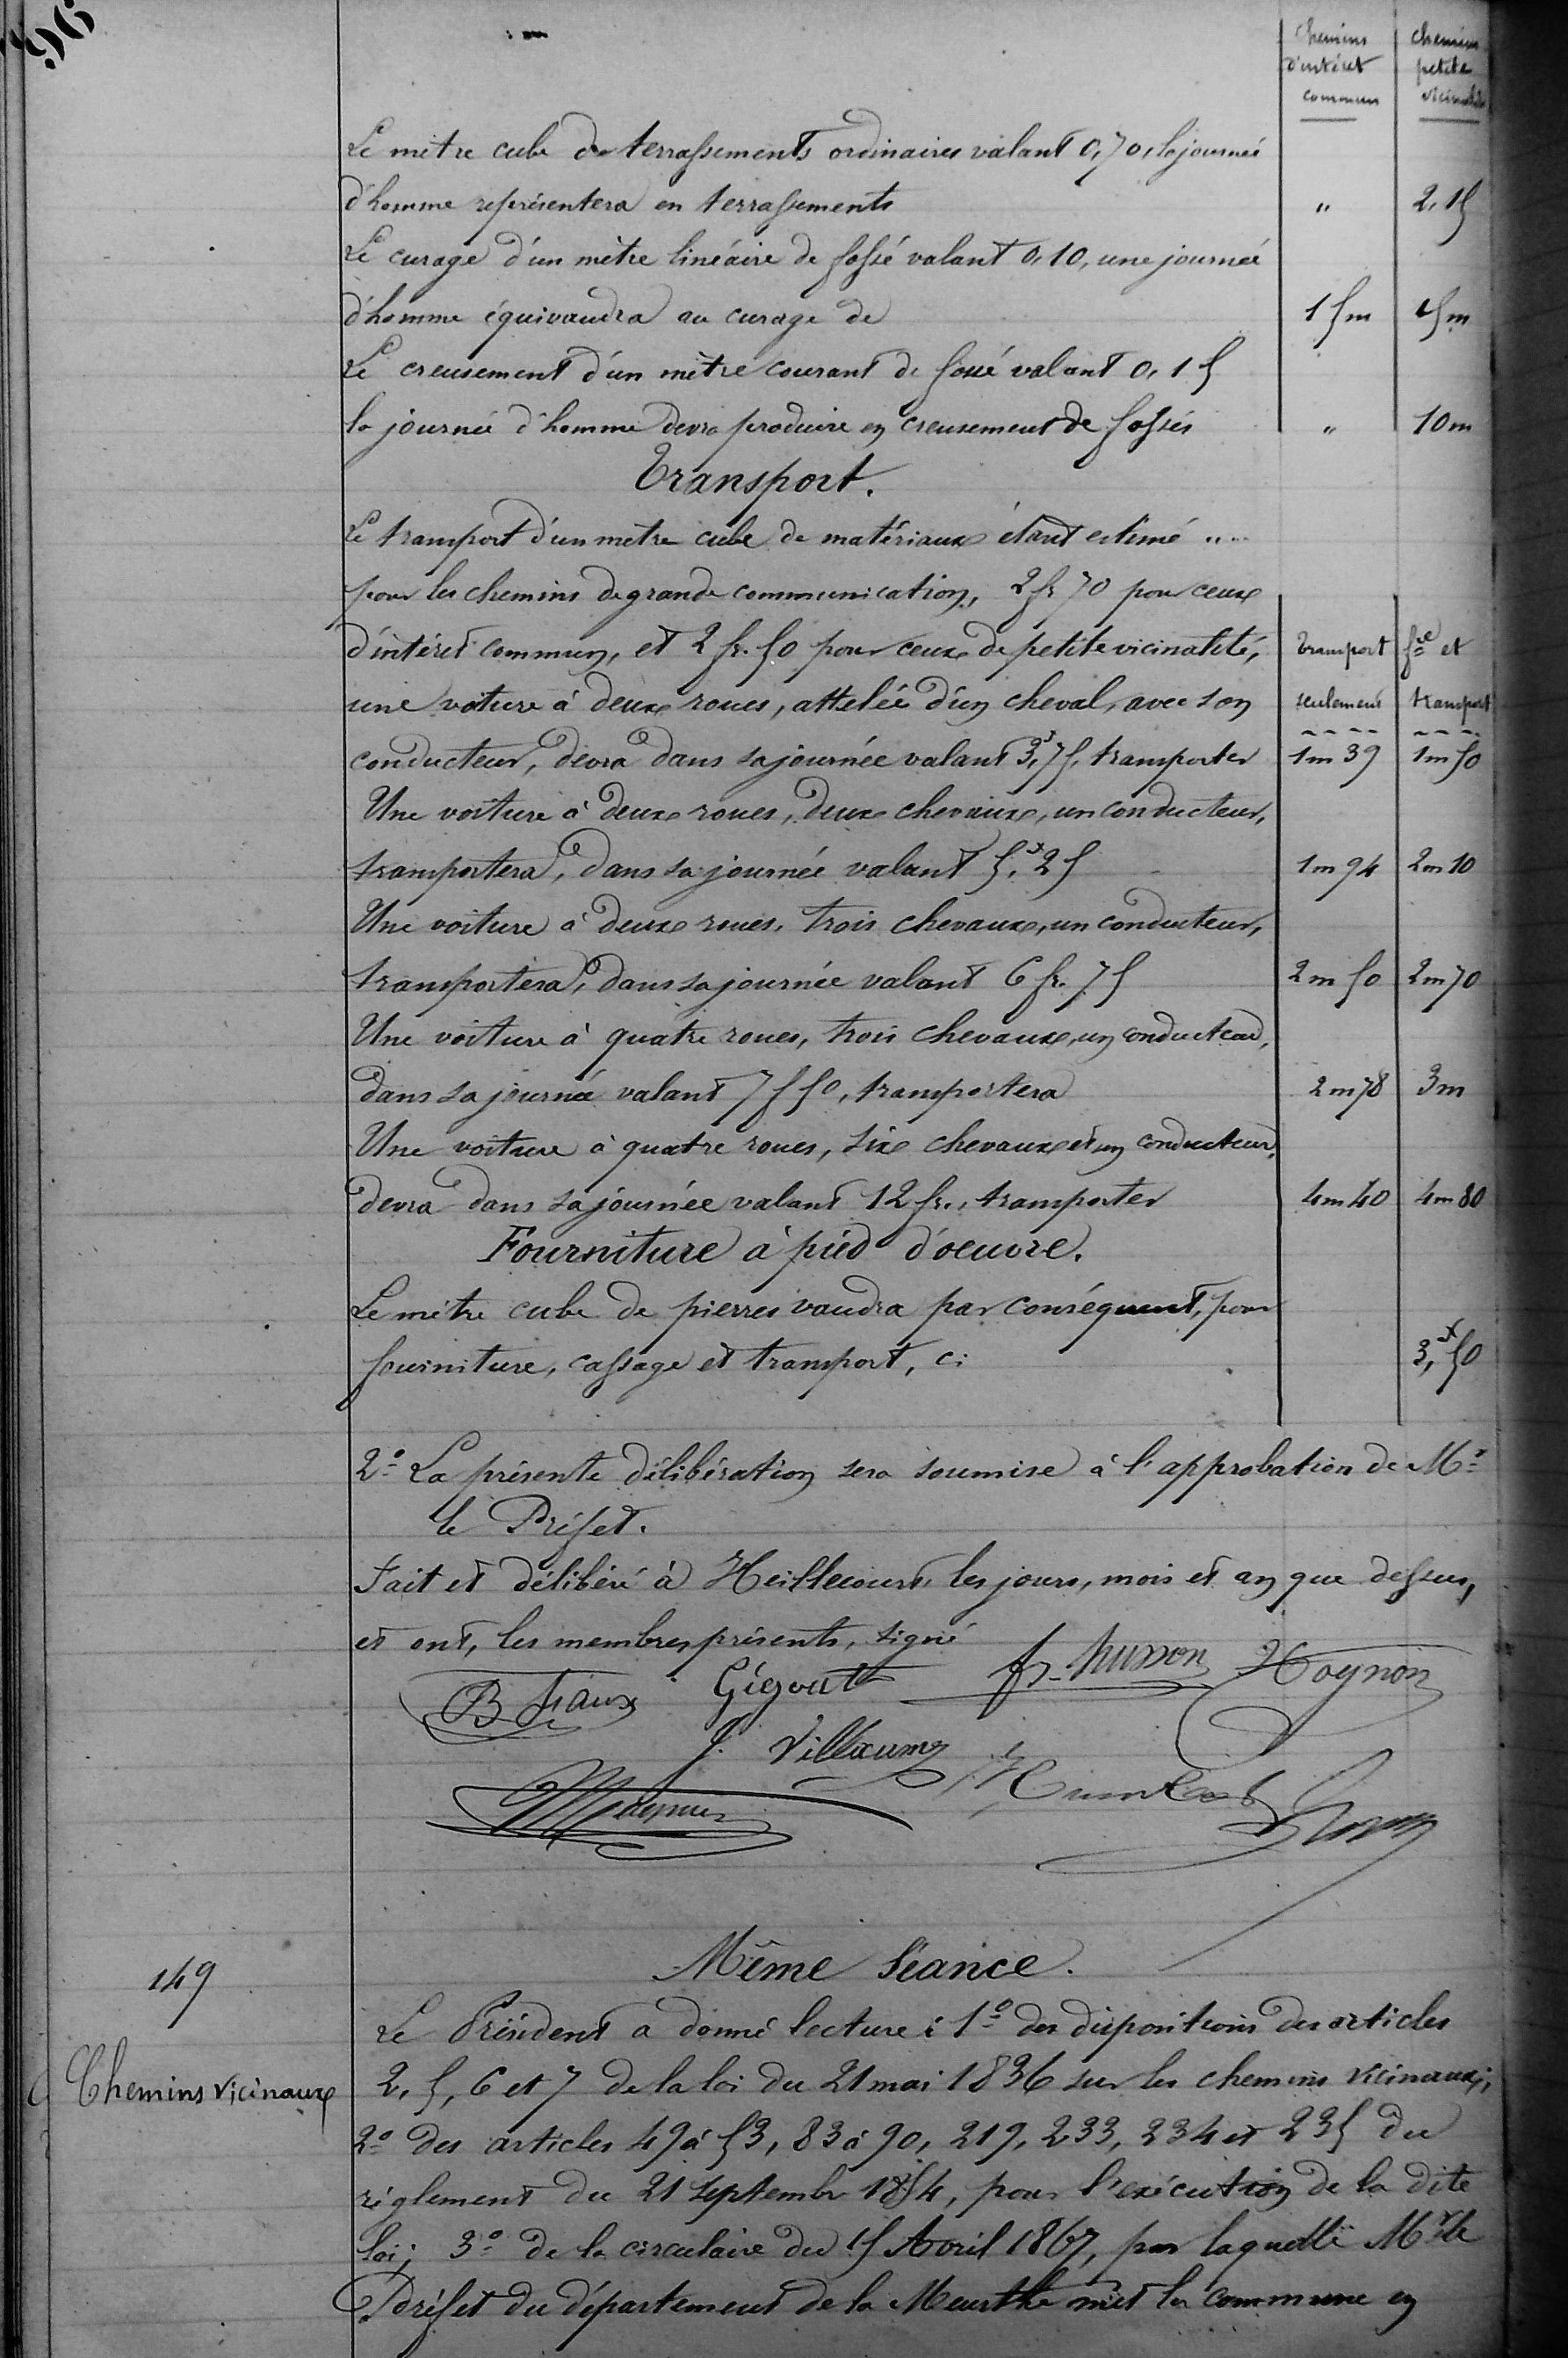 96
Chemins | Chemins
d'intérêt | petite
commun | vicinalité
Le mètre cube de terrassements ordinaires valant 0,70, la journée
d'homme représentera en terrassements | " | 2,15
Le curage d'un mètre linéaire de fossé valant 0,10, une journée
d'homme équivaudra au curage de | 15m | 15m
Le creusement d'un mètre courant de fossé valant 0,15
la journée d'homme devra produire en creusement de fossés | " | 10m
Transport.
Le transport d'un mètre cube de matériaux étant estimé "..
pour les chemins de grande communication, 2 fr 70 pour ceux
d'intérêt commun, et 2 fr. 50 pour ceux de petite vicinalité, | transport | fre et
une voiture à deux roues, attelée d'un cheval, avec son | seulement | transport
conducteur, devra dans sa journée valant 3,f 75, transporter | 1m39 | 1m50
Une voiture à deux roues, deux chevaux, un conducteur,
transportera, dans sa journée valant 5,f 25 | 1m94 | 2m10
Une voiture à deux roues, trois chevaux, un conducteur,
transportera, dans sa journée valant 6 fr. 75 | 2m50 | 2m70
Une voiture à quatre roues, trois chevaux, un conducteur,
dans sa journée valant 7f50, transportera | 2m78 | 3m
Une voiture à quatre roues, six chevaux et un conducteur,
devra dans sa journée valant 12 fr., transporter | 4m40 | 4m80
Fourniture à pied d'oeuvre.
Le mètre cube de pierres vaudra par conséquent, pour
fourniture, cassage et transport, ci | 3,f 50
2º La présente délibération sera soumise à l'approbation de Mr
le Préfet.
Fait et délibéré à Heillecourt, les jours, mois et an que dessus,
et ont, les membres présents, signé
B Giaux Gégout fs. husson Hoynon
J. Villaume Humbert
149
Même Séance.
Le Président a donné lecture : 1º des dispositions des articles
Chemins vicinaux
2, 5, 6 et 7 de la loi du 21 mai 1836 sur les chemins vicinaux;
2º des articles 49 à 53, 83 à 90, 219, 233, 234 et 235 du
règlement du 21 septembre 1854, pour l'exécution de la dite
loi; 3º de la circulaire du 15 Avril 1867, par laquelle Mr le
Préfet du département de la Meurthe met la commune en